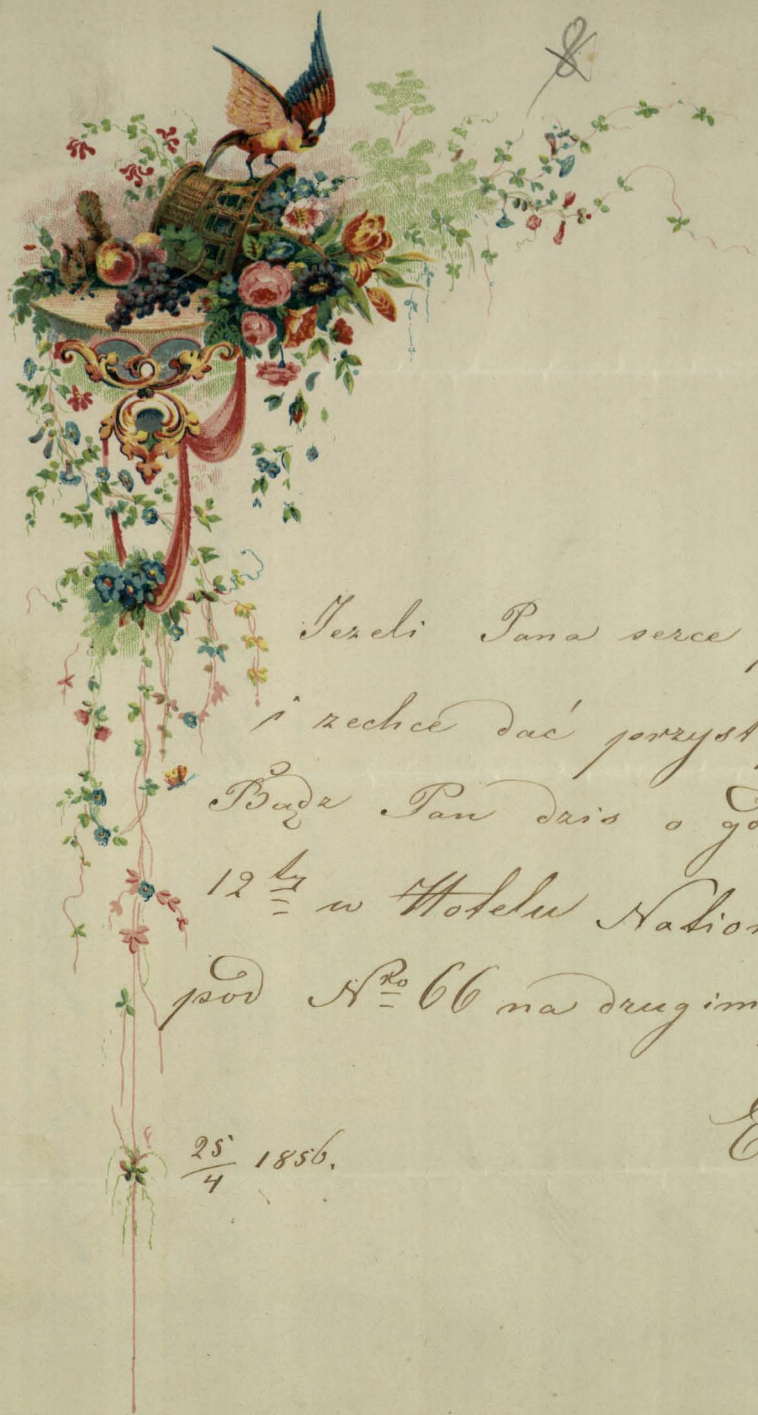 8
Jezeli Pana serce
i zechce dać przyst
Bądz Pan dzis o go
12tej w Hotelu Nation
pod Nro 66 na drugim
E
25/4 1856.